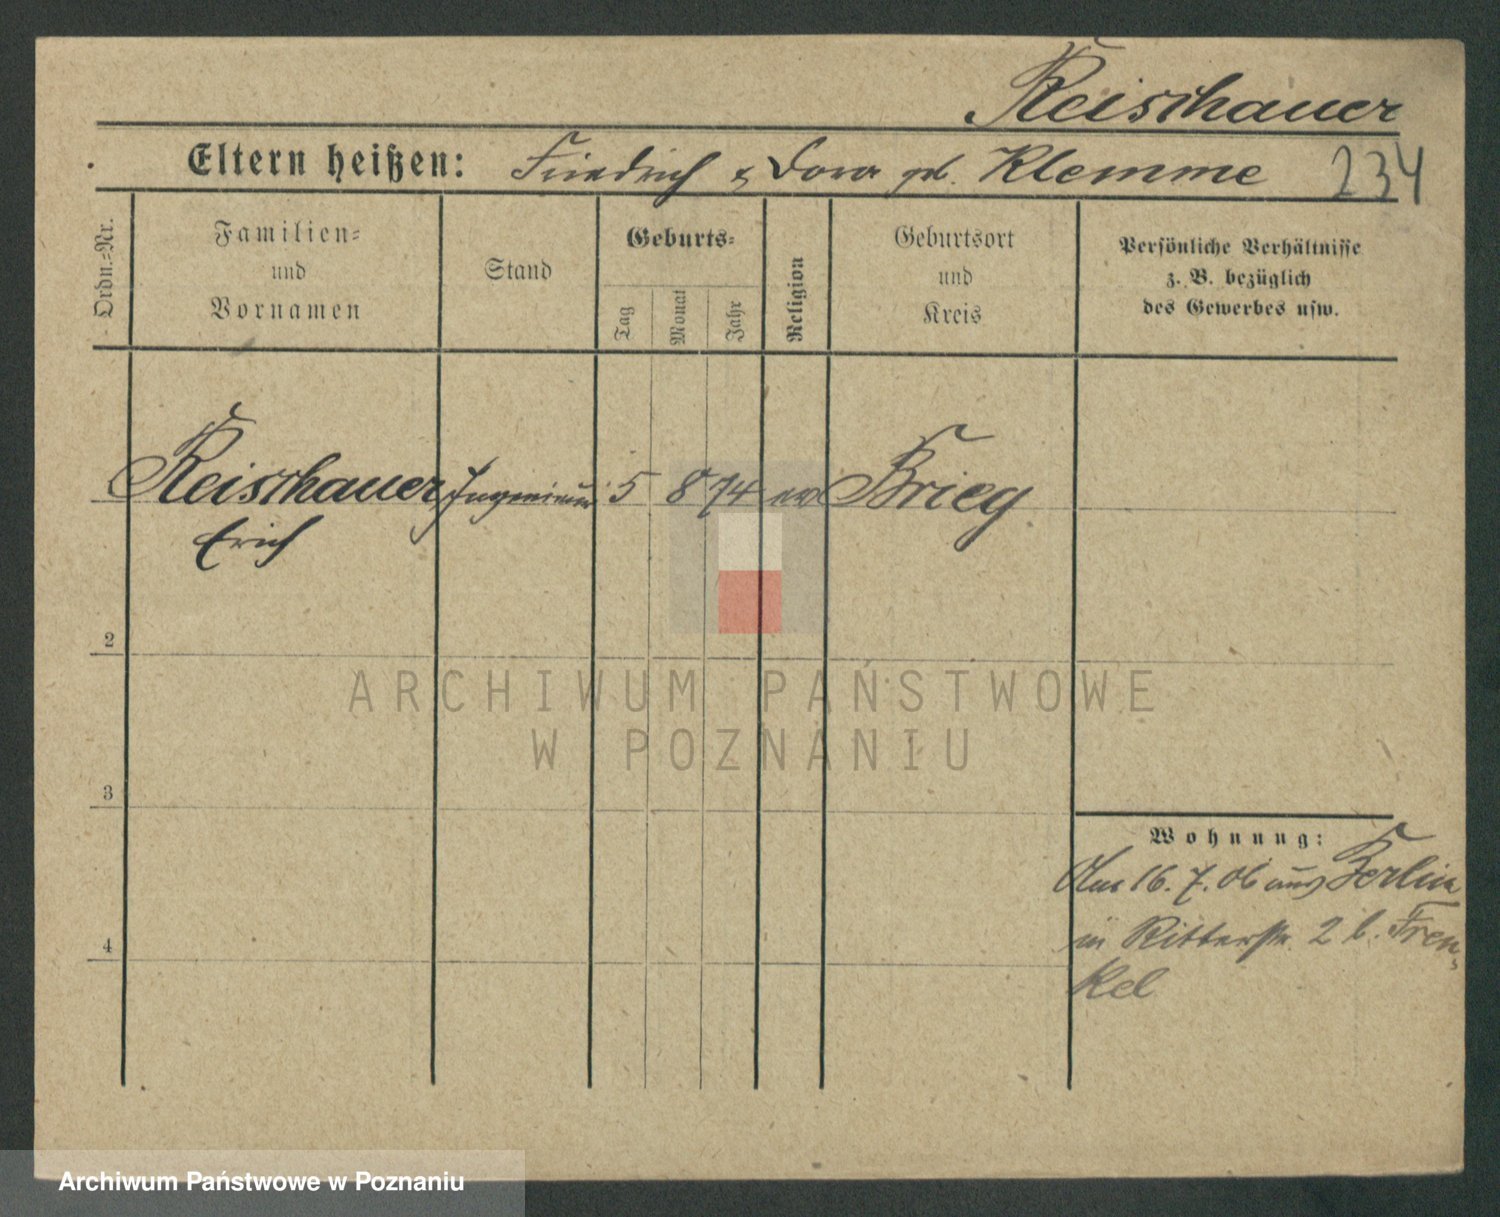 Reischauer
Eltern heißen: Friedrich & Dora geb. Klemme 234
Ordn.-Nr.
Familien-
und
Vornamen
Stand
Geburts-
Tag
Monat
Jahr
Religion
Geburtsort
und
Kreis
Persönliche Verhältnisse
z. B. bezüglich
des Gewerbes usw.
Reischauer Ingenieur 5 8 74 ev Brieg
Erich
2
ARCHIWUM PAŃSTWOWE
W POZNANIU
3
Wohnung:
16. 7. 06 aus Berlin
in Ritterstr. 2 b. Fren-
kel
4
Archiwum Państwowe w Poznaniu